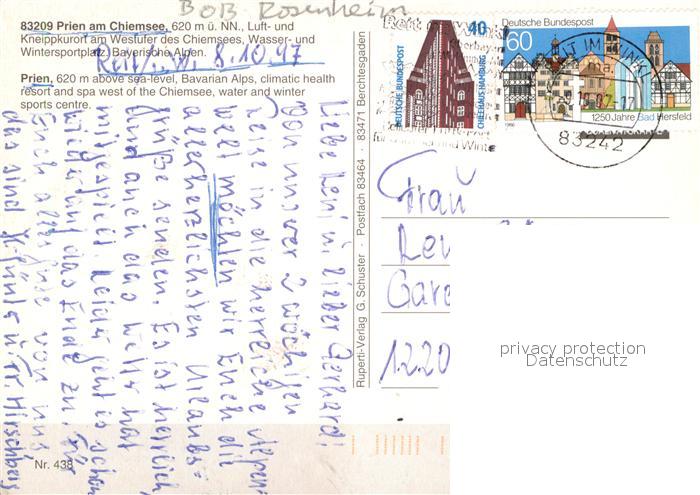 BOB Rosenheim
83209 Prien am Chiemsee, 620 m ü. NN., Luft- und
Kneippkurort am Westufer des Chiemsees, Wasser- und
Wintersportplatz, Bayerische Alpen.
Reit i. W. 8.10.97
Prien, 620 m above sea-level, Bavarian Alps, climatic health
resort and spa west of the Chiemsee, water and winter
sports centre.
Liebe Leni u. lieber Gerhard!
Von unserer 2 wöchigen
Reise in die herrliche Alpen-
welt möchten wir Euch die
allerherzlichsten Urlaubs-
grüße senden. Es ist herrlich
und auch das Wetter hat
mitgespielt. Leider geht es schon
wieder auf das Ende zu. Für
Euch alles Gute von uns
das sind H. Günter u. Fr. Hirschberg
Nr. 438
Ruperti-Verlag G. Schuster · Postfach 83464 · 83471 Berchtesgaden
40
DEUTSCHE BUNDESPOST
CHILEHAUS HAMBURG
Deutsche Bundespost
60
1250 Jahre Bad Hersfeld
REIT IM WINKL
83242
Frau
Gare
1220
privacy protection
Datenschutz